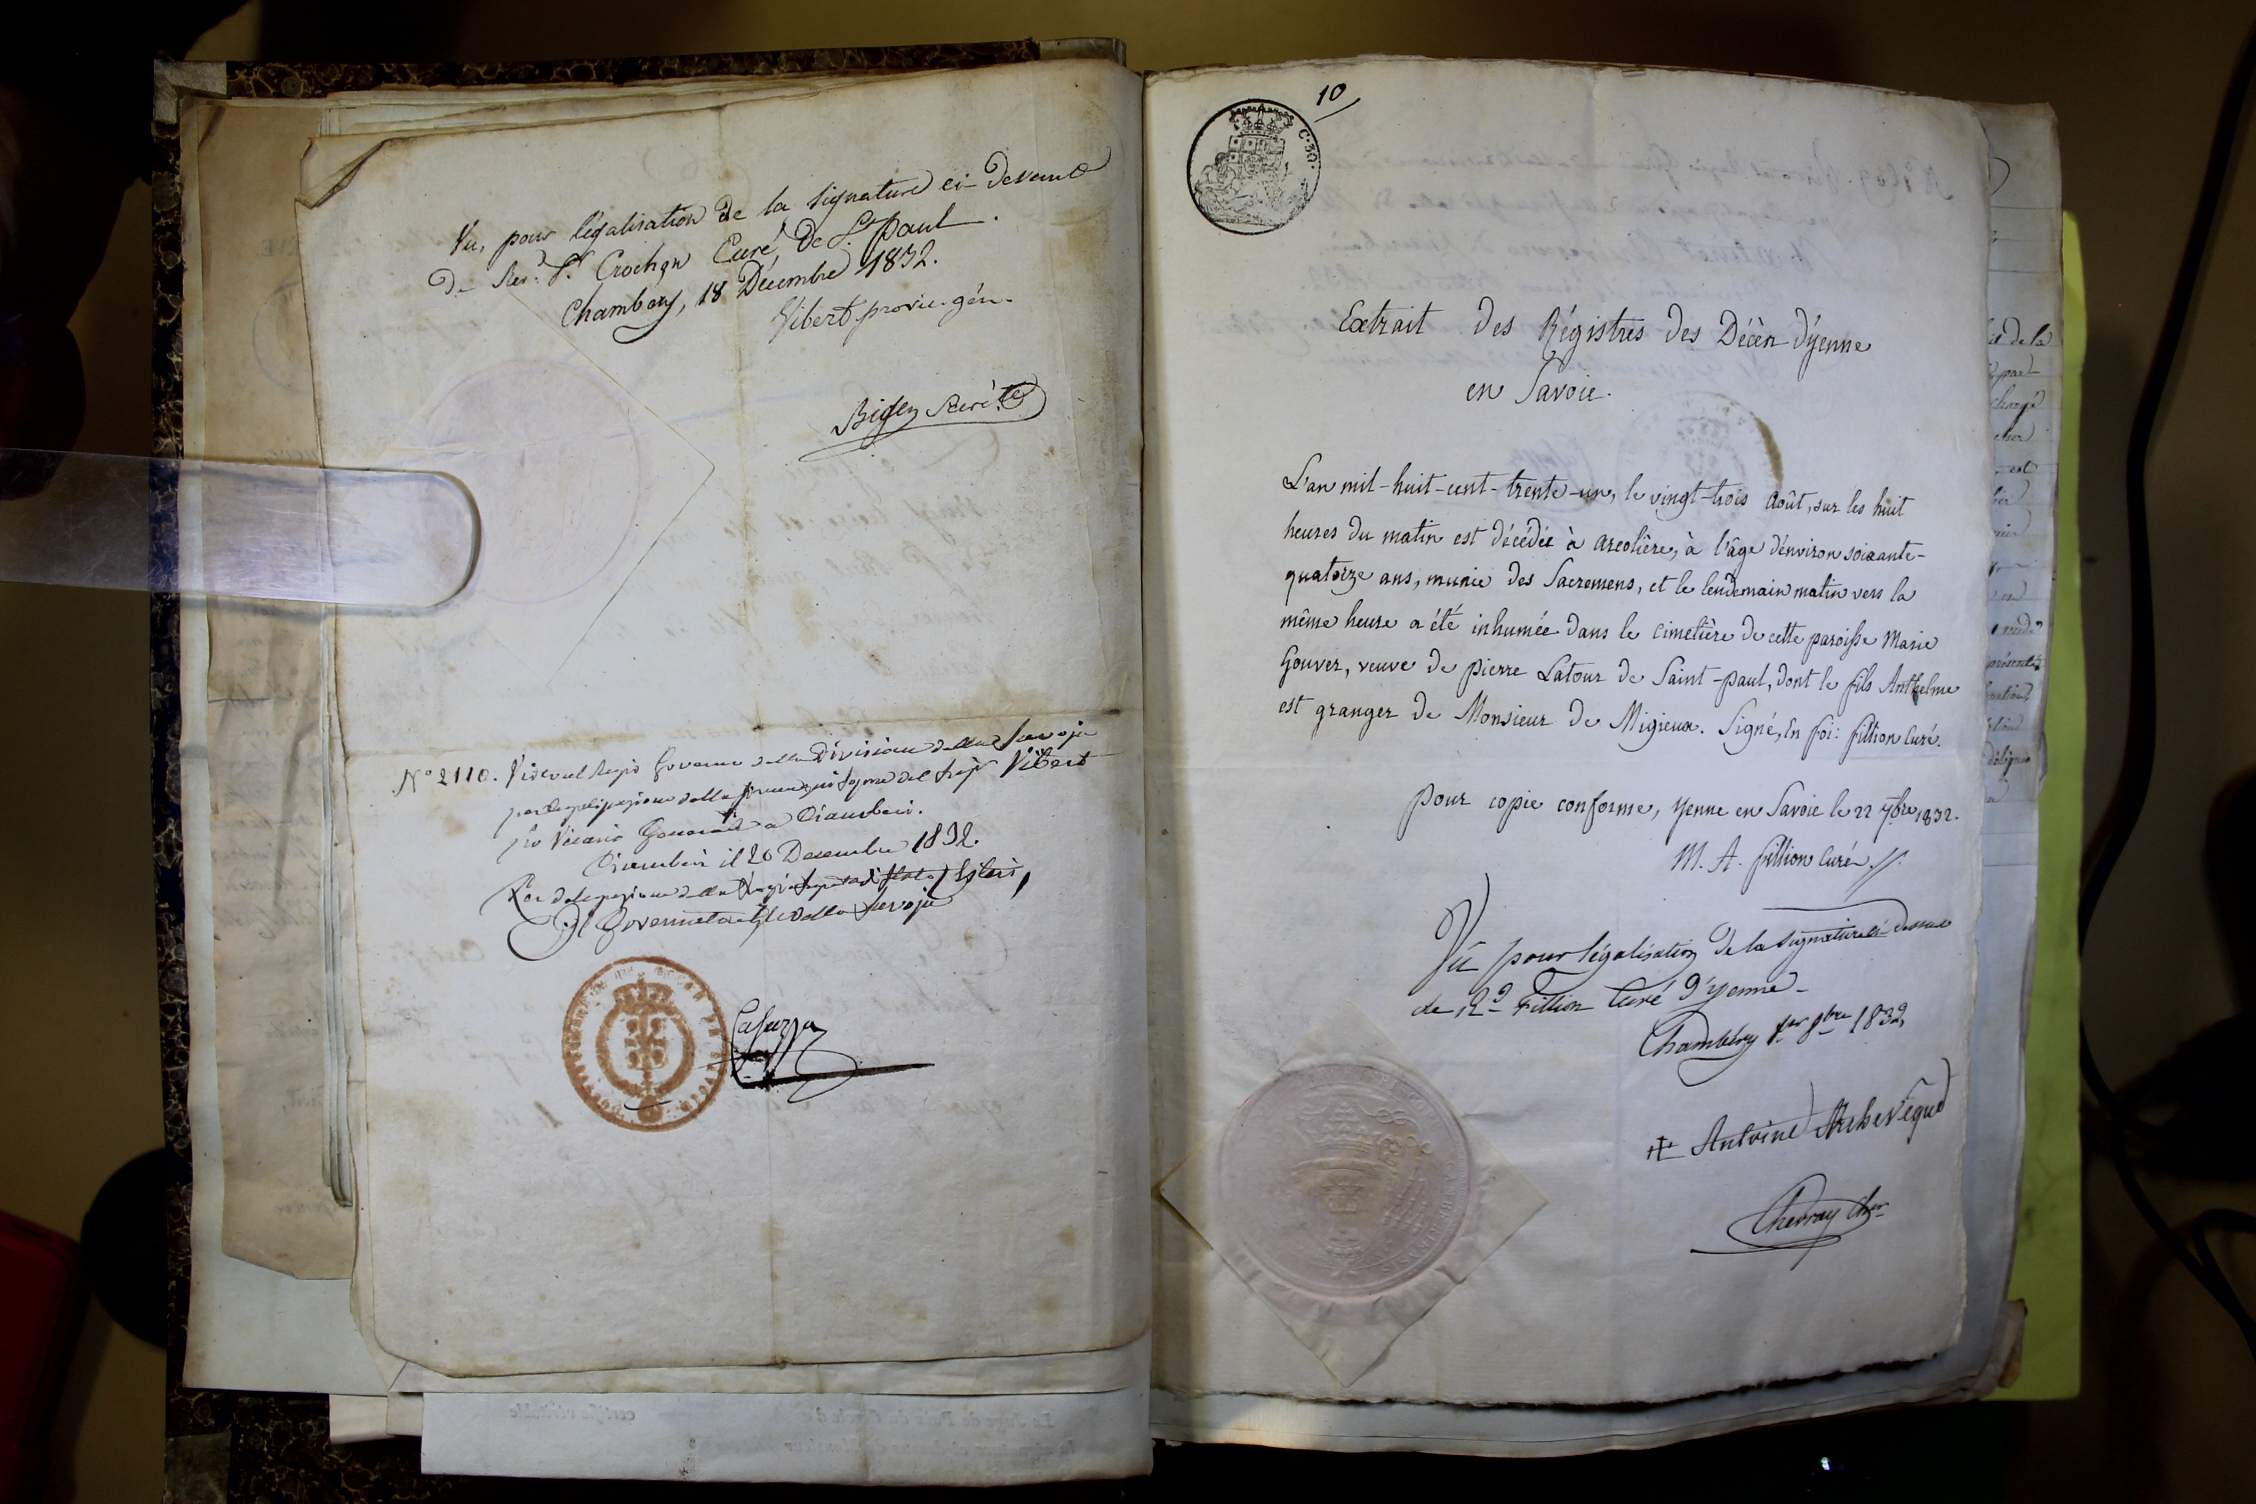 Vu, pour légalisation de la signature ci-devant
de Rev.d S.r Crochon Curé de S.t Paul.
Chambery, 18 Décembre 1832.
Vibert provic. gén.
Secré.re
N.o 2110. Visto nel Regio Governo della Divisione della Savoja
per legalizzazione della firma del Vibert
Pro Vicario Generale a Ciamberì.
Ciamberì il 20 Decembre 1832.
Per delegazione della Regia Segreteria di Stato / Esteri,
Il Governatore Gle della Savoja
10
C. 30.
Extrait des Régistres des Décès d'yenne
en Savoie.
L'an mil-huit-cent-trente-un, le vingt-trois Août, sur les huit
heures du matin est décédée à arcolière, à l'âge d'environ soixante-
quatorze ans, munie des Sacremens, et le lendemain matin vers la
même heure a été inhumée dans le cimetière de cette paroisse Marie
Gouver, veuve de pierre Latour de Saint-paul, dont le fils Anthelme
est granger de Monsieur de Migieux. Signé, En foi: fillion Curé.
pour copie conforme, yenne en Savoie le 22 7bre 1832.
M. A. fillion Curé.
Vu pour légalisation de la signature ci-dessus
de R.d Fillion Curé d'yenne-
Chambéry 1.er 8.bre 1832,
+ Antoine Archevêque
Chevray Cher